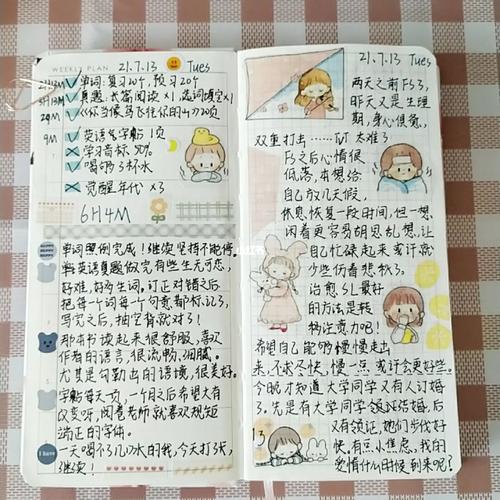 WEEKLY PLAN 21.7.13 Tues
单词：复习20个，预习20个
真题：长篇阅读×1，选词填空×1
20页
9M 英语练字帖1页
学习音标
喝够3杯水
觉醒年代×3
6H4M
单词照例完成！继续坚持不能停。
英语真题做完有些生无可恋，
好难，好多生词，订正对错之后
把每一个词每一个句意都标记了，
写完之后，抽空背就对了！
那本书读起来很舒服，喜欢
作者的语言，很流畅，细腻。
尤其是勾勒出的语境，很美好。
字帖每天一页，一个月之后希望大有
改变呀，阅卷老师就喜欢规矩
端正的字体。
I have
一天喝不了几口水的我，今天打3卡，
继续！
21.7.13 Tues
两天之前Fs3，
昨天又是生理
期，身心俱惫，
双重打击……TVT 太难了
Fs之后心情很
低落，本想给
自己放几天假，
休息恢复一段时间，但一想，
闲着更容易胡思乱想，让
自己忙碌起来或许就
少些伤春悲秋了。
治愈SL最好
的方法是转
物注意力吧！
希望自己能够慢慢走出
来，不求尽快，慢一点或许会更好些。
今晚才知道大学同学又有人订婚
了。先是有大学同学领证结婚，后
又有领证，她们步伐好
快，有点小焦虑，我的
爱情什么时候到来呢？
13
小红书